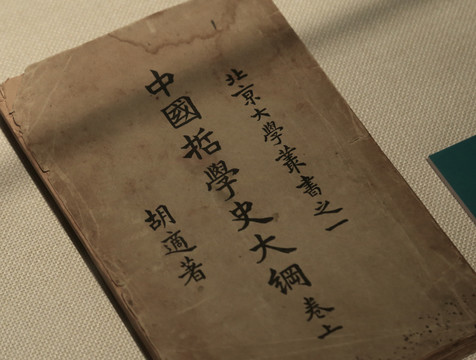 北京大學叢書之一
中國哲學史大綱卷上
胡適著